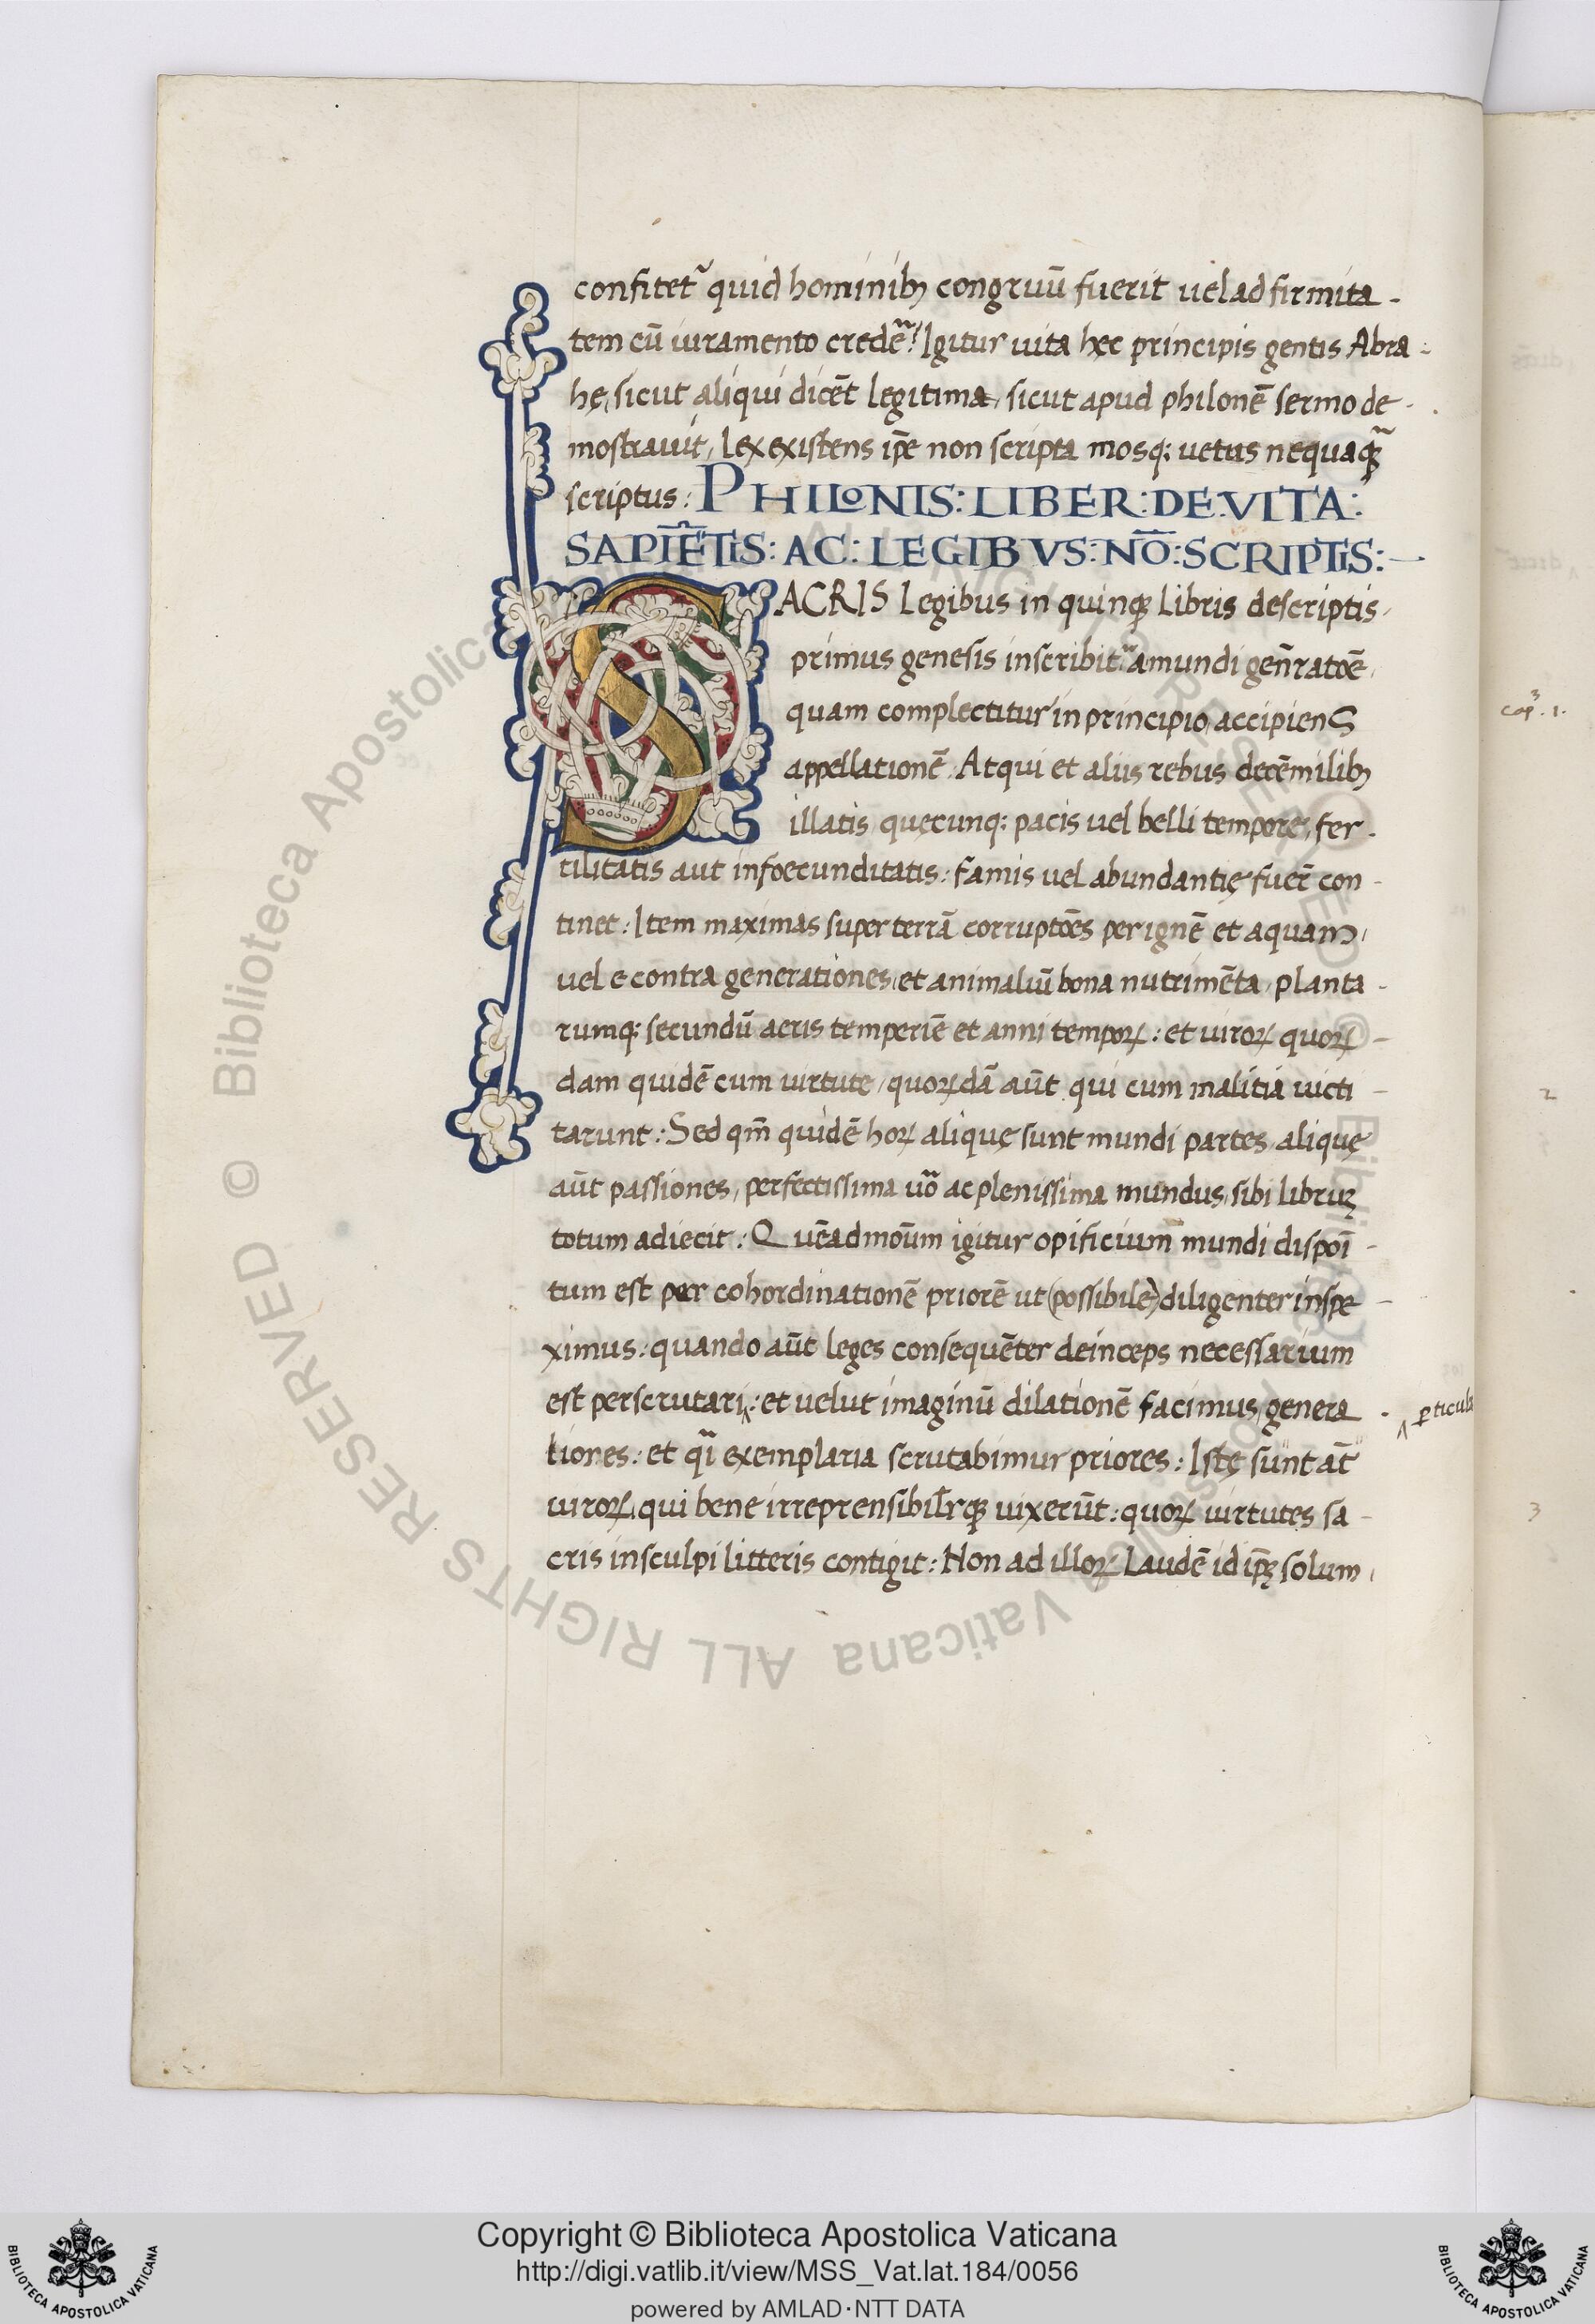 confitet᷑ quid hominibꝫ congruū fuerit uel ad firmita-
tem cū iuramento credēt᷑? Igitur uita hęc principis gentis Abra-
hę, sicut aliqui dicēt legitima, sicut apud philonē sermo de-
mostrauit, lex existens ip̄e non scripta mosq; uetus nequaꝗ̃
scriptus: PHILONIS: LIBER: DE VITA:
SAPIĒTIS: AC: LEGIBVS: NŌ: SCRIPTIS:
SACRIS Legibus in quinqꝫ Libris descriptis,
primus genesis inscribit᷑ a mundi gen̄ratōe,
quam complectitur in principio accipiens
appellationē. Atqui et aliis rebus decēmilibꝫ
illatis quęcunq; pacis uel belli tempore, fer-
tilitatis aut infoecunditatis: famis uel abundantię fuer̄ con-
tinet: Item maximas super terrā corruptōes per ignē et aquam,
uel e contra generationes, et animaliū bona nutrimēta, planta-
rumq; secundū aeris temperiē et anni tempoꝝ: et uiroꝝ quoꝝ-
dam quidē cum uirtute, quoꝝdā aūt qui cum malitia uicti-
tarunt: Sed qm̄ quidē hoꝝ alique sunt mundi partes, alique
aūt passiones, perfectissima u̅o ac plenissima mundus, sibi libruꝫ
totum adiecit: Quēadmōum igitur opificium mundi dispoī-
tum est per cohordinationē priorē ut (possibile) diligenter inspe-
ximus: quando aūt leges consequēter deinceps necessarium
est perscrutari: et uelut imaginū dilationē facimus, genera-
ꝑticula
liones: et q̄i exemplaria scrutabimur priores: Istę sunt at̄
uiroꝝ, qui bene irreprensibilr̄qꝫ uixerūt: quoꝝ uirtutes sa-
cris insculpi litteris contigit: Non ad illoꝝ Laudē id ip̄ę solum,
cap. 3. 1.
2
3
Copyright © Biblioteca Apostolica Vaticana
http://digi.vatlib.it/view/MSS_Vat.lat.184/0056
powered by AMLAD·NTT DATA
BIBLIOTECA APOSTOLICA VATICANA
BIBLIOTECA APOSTOLICA VATICANA
© Biblioteca Apostolica Vaticana ALL RIGHTS RESERVED